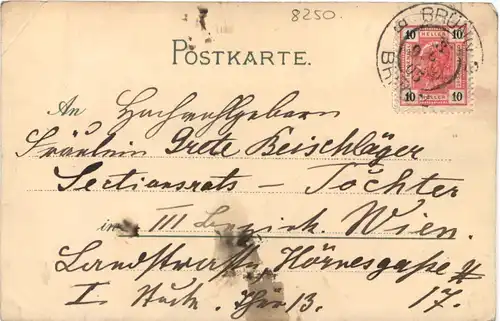 8250.
BRÜNN
10 HELLER 10
10 HELLER 10
POSTKARTE.
An Hochwohlgeboren
Fräulein Grete Beischläger
Sectionsrats – Töchter
in III Bezirk. Wien.
Landstraße Hörnesgaße №
I. Stock. Thür 13. 17.